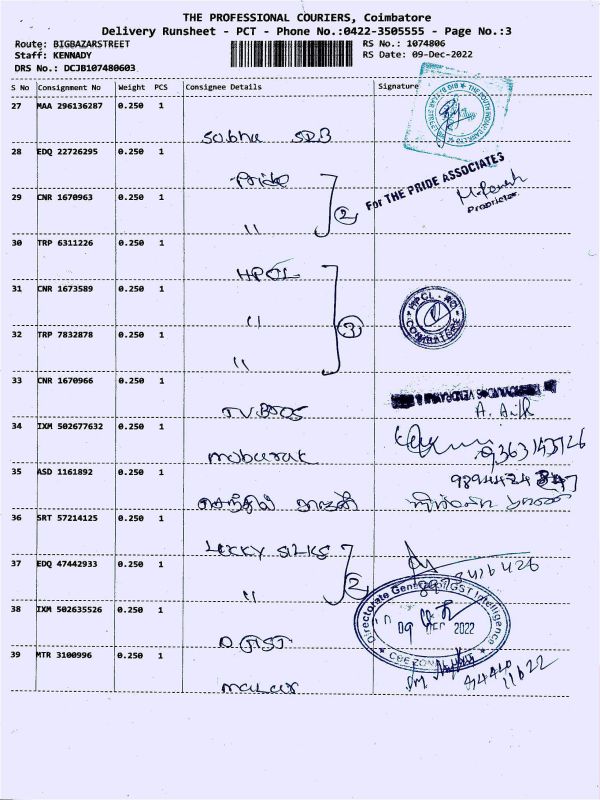 THE PROFESSIONAL COURIERS, Coimbatore
Delivery Runsheet - PCT - Phone No.:0422-3505555 - Page No.:3
Route: BIGBAZARSTREET
Staff: KENNADY
DRS No.: DCJB107480603
RS No.: 1074806
RS Date: 09-Dec-2022
S No Consignment No Weight PCS Consignee Details Signature
27 MAA 296136287 0.250 1
Sobha SDB
28 EDQ 22726295 0.250 1
Pride
For THE PRIDE ASSOCIATES
Proprietor
29 CNR 1670963 0.250 1
" 2
30 TRP 6311226 0.250 1
HPCL
31 CNR 1673589 0.250 1
" 3
HPCL - RO
COIMBATORE
32 TRP 7832878 0.250 1
"
33 CNR 1670966 0.250 1
34 IXM 502677632 0.250 1
mubarak
9363143126
35 ASD 1161892 0.250 1
செந்தில்
36 SRT 57214125 0.250 1
LUCKY SILKS
37 EDQ 47442933 0.250 1
" 2
38 IXM 502635526 0.250 1
Directorate General GST Intelligence
09 DEC 2022
39 MTR 3100996 0.250 1
malar